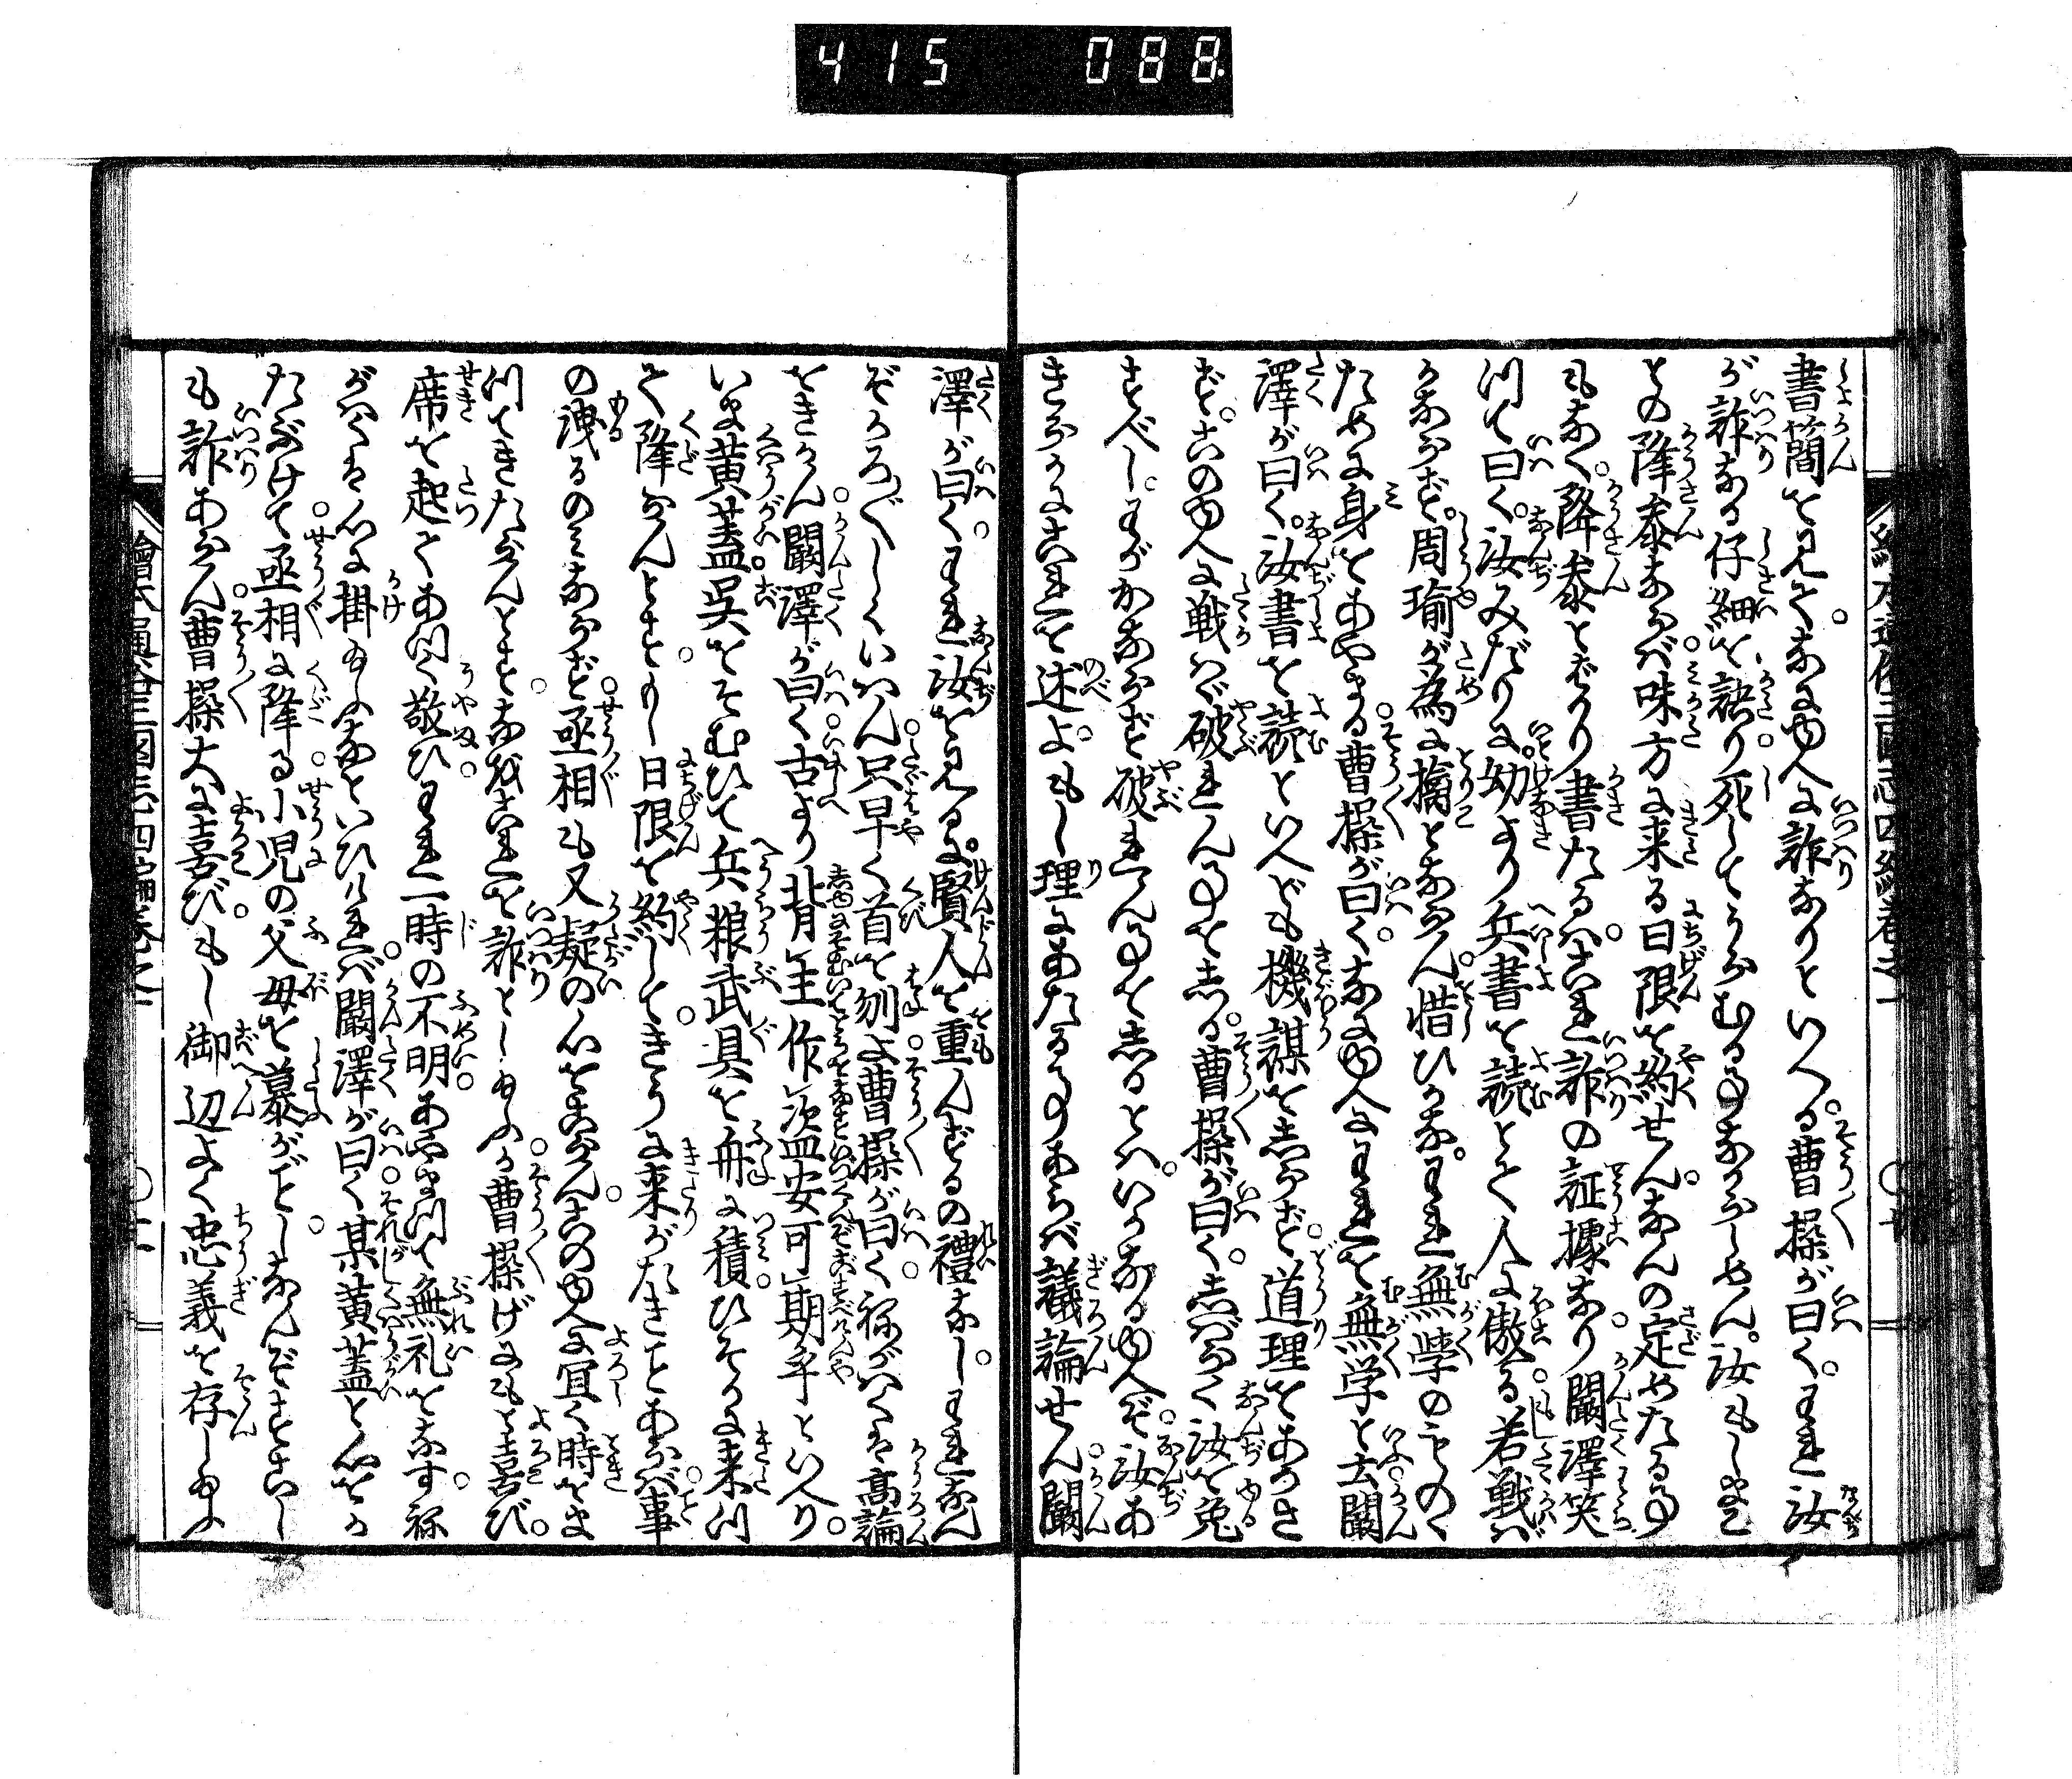 415 088
書簡を見て。なにゆへに詐なりといへる。曹操が曰く。われ汝
が詐なる仔細を訣り。死してうらむる事なからしめん。汝もしまこ
との降参ならば。味方に来る日限を約せん。なんの定めたる事
もなく。降参とばかり書たるは。これ詐の証據なり。闞澤笑
つて曰く。汝みだりに。幼より兵書を読とて人に傲る。若戦はゞ
かならず。周瑜が為に擒とならん。惜ひかな。われ無學のものゝ
ために身をあやまる。曹操が曰く。なにゆへにわれを無学と云。闞
澤が曰く。汝書を読といへども機謀をしらず。道理をあきら
めず。このゆへに戦はゞ破れん事をしる。曹操が曰く。しばらく汝を免
すべし。わがかならず破れん事をしるとは。いかなるゆへぞ。汝あ
きらかにこれを述よ。もし理にあたる事あらば議論せん。闞
澤が曰く。われ汝を見るに。賢人を重んずるの禮なし。われなん
ぞかろ〴〵しくいはん。只早く首を刎よ。曹操が曰く。ねがはくは高論
をきかん。闞澤が曰く。古より背主作盗安可期乎といへり。
いま黄蓋。呉をそむひて兵粮武具を舟に積。ひそかに来つ
て降らんとす。もし日限を約して。きうに来りがたきことあらば。事
の洩るのみならず。丞相も又疑の心をこさん。このゆへに宜く時をま
つてきたらんとす。なればこれを詐としたまふか。曹操げにもと喜び。
席を起てあつく敬ひ。われ一時の不明。あやまつて無礼をなす。ね
がはくは心に掛たまふなといひければ。闞澤が曰く。某黄蓋と心をか
たぶけて。丞相に降る。小児の父母を慕がごとし。なんぞすこし
も詐あらん。曹操大に喜び。もし御辺よく忠義を存したまふ